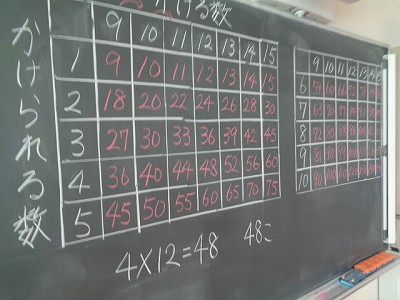 かける数
かけられる数
9 10 11 12 13 14 15
1 9 10 11 12 13 14 15
2 18 20 22 24 26 28 30
3 27 30 33 36 39 42 45
4 36 40 44 48 52 56 60
5 45 50 55 60 65 70 75
4×12=48 48=
9 10 11 12 13
6 54 60 66 72
7 63 70 77
8 72 80 88
9 81 90 99
10 90 100 110